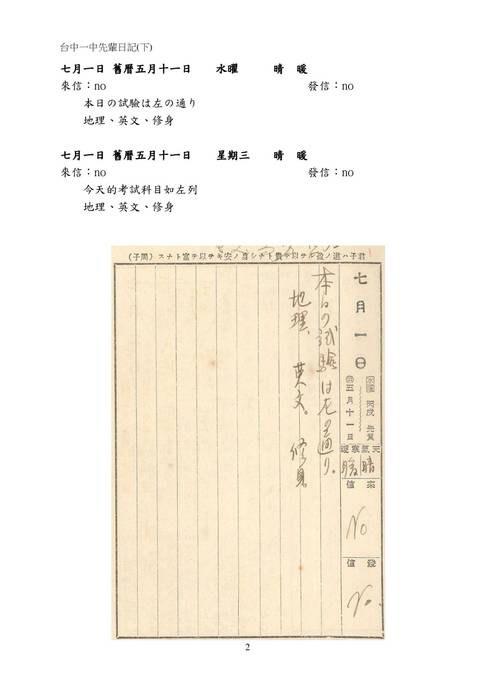 台中一中先輩日記(下)
七月一日 舊曆五月十一日 水曜 晴 暖
來信：no 發信：no
本日の試驗は左の通り
地理、英文、修身
七月一日 舊曆五月十一日 星期三 晴 暖
來信：no 發信：no
今天的考試科目如左列
地理、英文、修身
君子ハ道ノ充ルヲ以テ貴トナシ身ノ安キヲ以テ富トナス（周子）
七月一日
水曜 丙戌 先負
舊五月十一日
天氣寒暖
晴
暖
來信
No
發信
No.
本日の試驗は左の通り。
地理、英文。修身
2